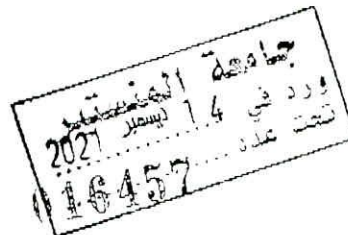 جامعة المنستير
ورد في 14 ديسمبر 2021
تحت عدد
016457